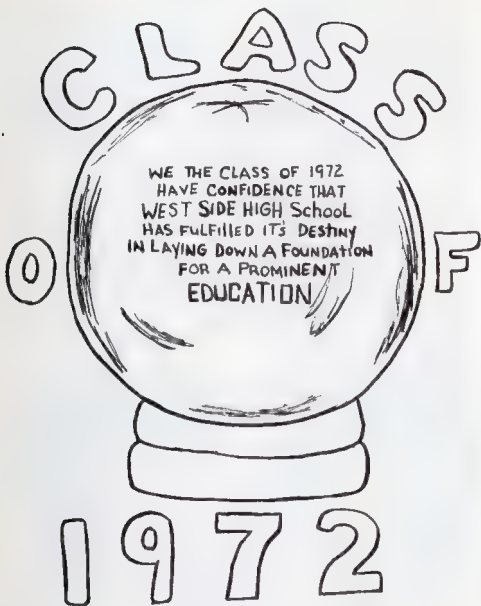 CLASS
O F
WE THE CLASS OF 1972
HAVE CONFIDENCE THAT
WEST SIDE HIGH School
HAS FULFILLED IT'S DESTINY
IN LAYING DOWN A FOUNDATION
FOR A PROMINENT
EDUCATION
1972